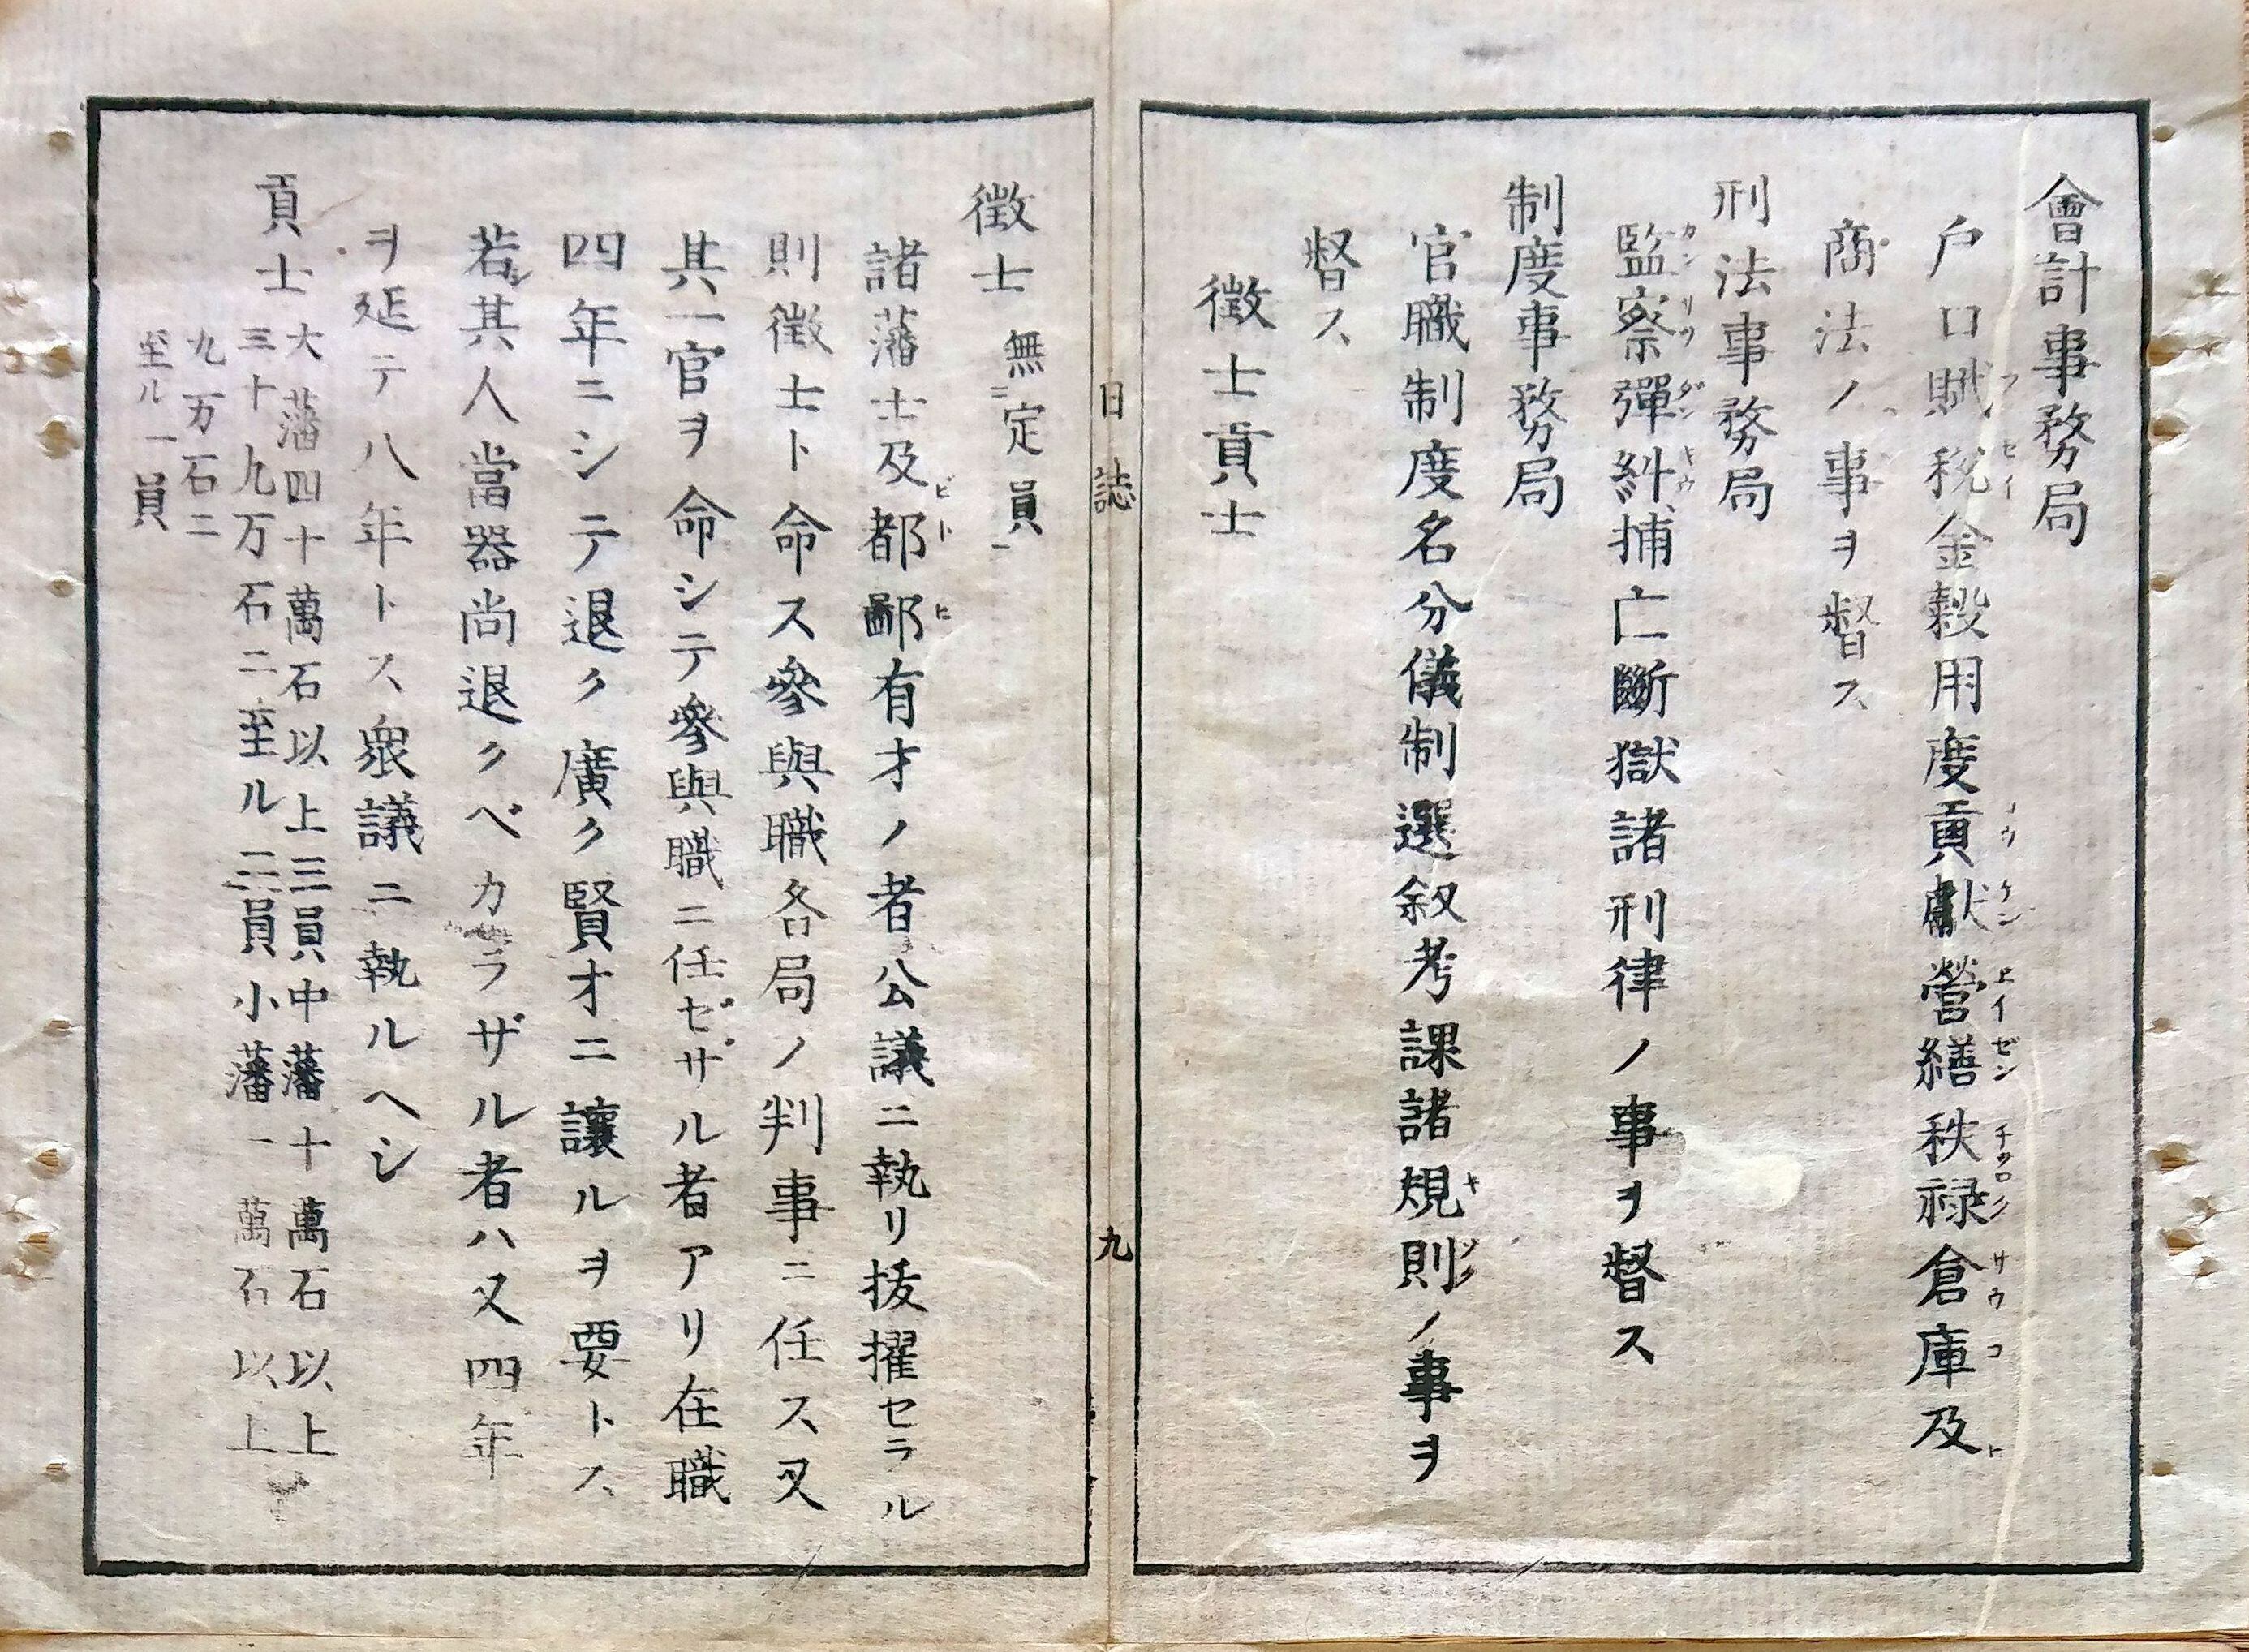 會計事務局
戶口賦税金穀用度貢獻營繕秩禄倉庫及
商法ノ事ヲ督ス
刑法事務局
監察彈糾捕亡斷獄諸刑律ノ事ヲ督ス
制度事務局
官職制度名分儀制選叙考課諸規則ノ事ヲ
督ス
徴士貢士
日誌
九
徴士 無定員
諸藩士及都鄙有才ノ者公議ニ執リ抜擢セラル
則徴士ト命ス參與職各局ノ判事ニ任ス又
其一官ヲ命シテ參與職ニ任ゼサル者アリ在職
四年ニシテ退ク廣ク賢才ニ讓ルヲ要トス
若シ其人當器尚退クベカラザル者ハ又四年
ヲ延テ八年トス衆議ニ執ルヘシ
貢士
大藩四十萬石以上三員中藩十萬石以上
三十九万石ニ至ル二員小藩一萬石以上
九万石ニ
至ル一員